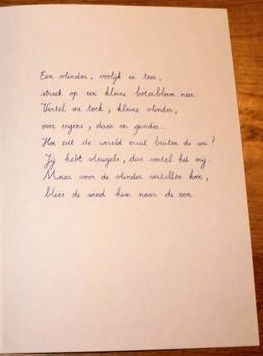 Een vlinder, vrolijk en teer,
streek op een kleine boterbloem neer.
Vertel me toch, kleine vlinder,
over ergens, daar en ginder.
Hoe ziet de wereld eruit buiten de wei?
Jij hebt vleugels, dus vertel het mij.
Maar voor de vlinder vertellen kon,
blies de wind hem naar de zon.